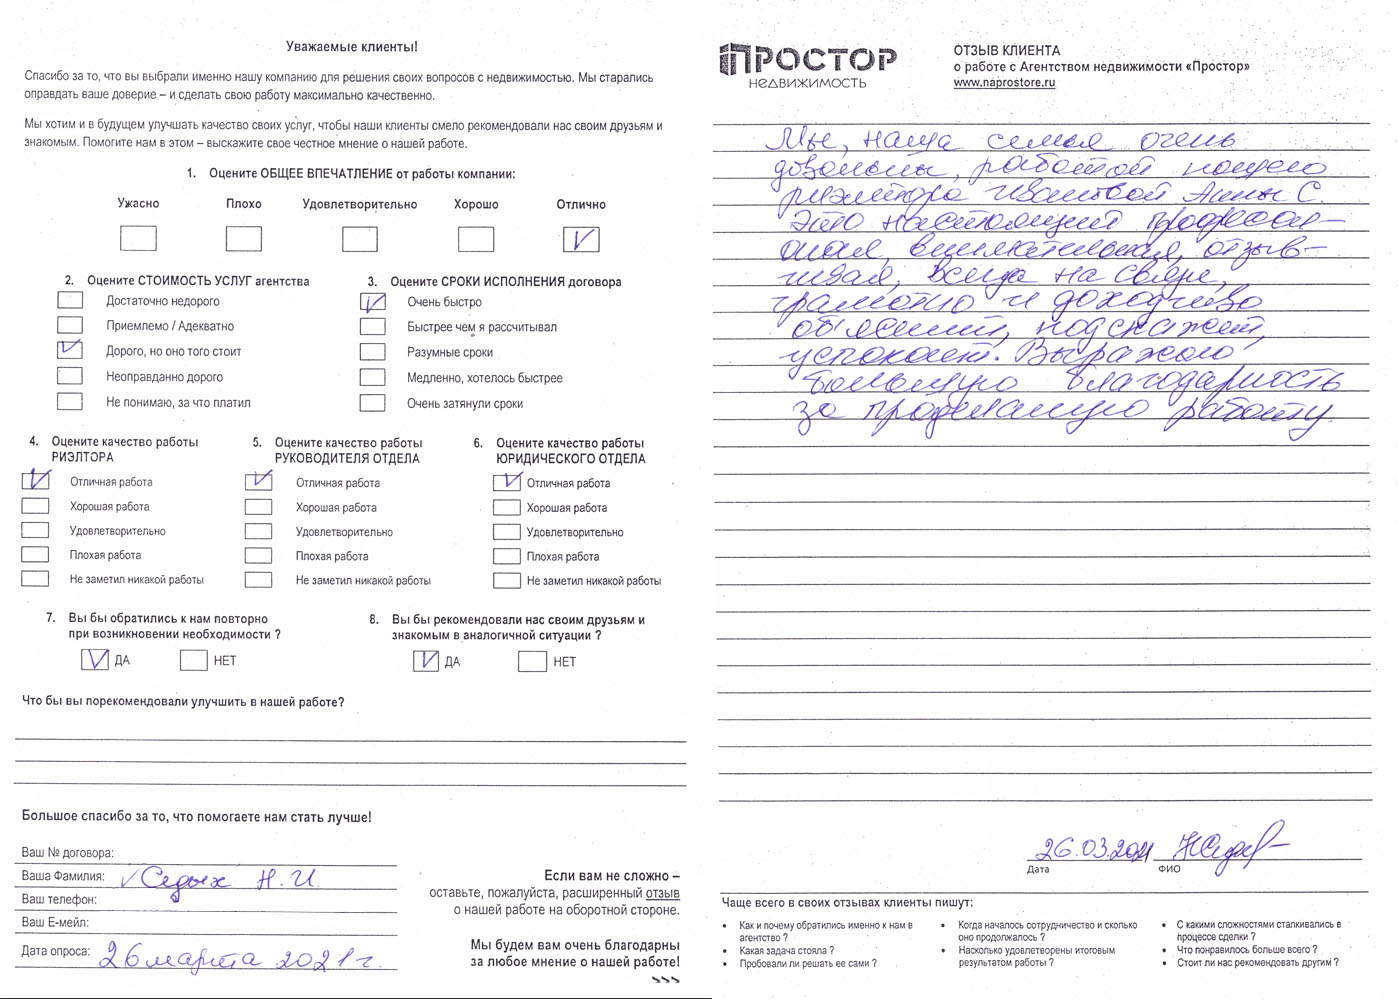 Уважаемые клиенты!
Спасибо за то, что вы выбрали именно нашу компанию для решения своих вопросов с недвижимостью. Мы старались
оправдать ваше доверие – и сделать свою работу максимально качественно.
Мы хотим и в будущем улучшать качество своих услуг, чтобы наши клиенты смело рекомендовали нас своим друзьям и
знакомым. Помогите нам в этом – выскажите свое честное мнение о нашей работе.
1. Оцените ОБЩЕЕ ВПЕЧАТЛЕНИЕ от работы компании:
Ужасно Плохо Удовлетворительно Хорошо Отлично
2. Оцените СТОИМОСТЬ УСЛУГ агентства
Достаточно недорого
Приемлемо / Адекватно
Дорого, но оно того стоит
Неоправданно дорого
Не понимаю, за что платил
3. Оцените СРОКИ ИСПОЛНЕНИЯ договора
Очень быстро
Быстрее чем я рассчитывал
Разумные сроки
Медленно, хотелось быстрее
Очень затянули сроки
4. Оцените качество работы
РИЭЛТОРА
Отличная работа
Хорошая работа
Удовлетворительно
Плохая работа
Не заметил никакой работы
5. Оцените качество работы
РУКОВОДИТЕЛЯ ОТДЕЛА
Отличная работа
Хорошая работа
Удовлетворительно
Плохая работа
Не заметил никакой работы
6. Оцените качество работы
ЮРИДИЧЕСКОГО ОТДЕЛА
Отличная работа
Хорошая работа
Удовлетворительно
Плохая работа
Не заметил никакой работы
7. Вы бы обратились к нам повторно
при возникновении необходимости ?
ДА НЕТ
8. Вы бы рекомендовали нас своим друзьям и
знакомым в аналогичной ситуации ?
ДА НЕТ
Что бы вы порекомендовали улучшить в нашей работе?
Большое спасибо за то, что помогаете нам стать лучше!
Ваш № договора:
Ваша Фамилия: Седых Н. И.
Ваш телефон:
Ваш Е-мейл:
Дата опроса: 26 марта 2021 г.
Если вам не сложно –
оставьте, пожалуйста, расширенный отзыв
о нашей работе на оборотной стороне.
Мы будем вам очень благодарны
за любое мнение о нашей работе!
>>>
ПРОСТОР
НЕДВИЖИМОСТЬ
ОТЗЫВ КЛИЕНТА
о работе с Агентством недвижимости «Простор»
www.naprostore.ru
Мы, наша семья очень
довольны, работой нашего
риэлтора Ивановой Анны С.
Это настоящий професси-
онал, внимательная, отзыв-
чивая, всегда на связи,
грамотно и доходчиво
объяснит, подскажет,
успокоит. Выражаю
большую благодарность
за проделанную работу.
26.03.2021
Дата ФИО
Чаще всего в своих отзывах клиенты пишут:
• Как и почему обратились именно к нам в
агентство ?
• Какая задача стояла ?
• Пробовали ли решать ее сами ?
• Когда началось сотрудничество и сколько
оно продолжалось ?
• Насколько удовлетворены итоговым
результатом работы ?
• С какими сложностями сталкивались в
процессе сделки ?
• Что понравилось больше всего ?
• Стоит ли нас рекомендовать другим ?